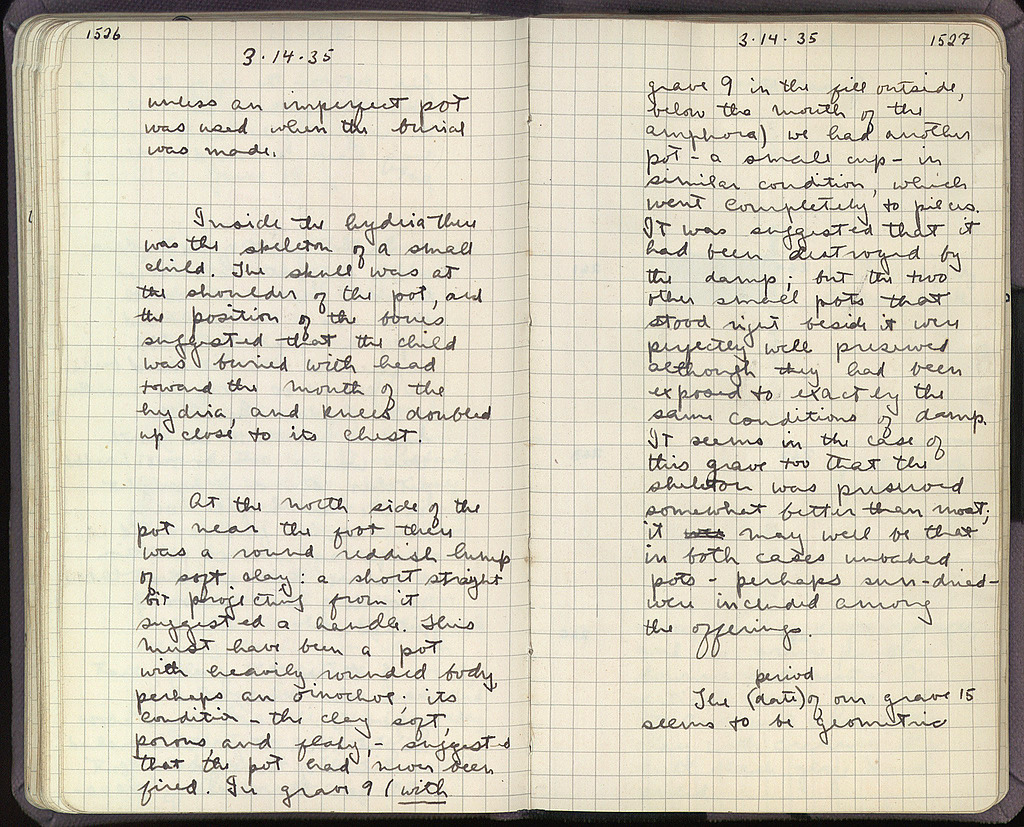 1526
3·14·35
unless an imperfect pot
was used when the burial
was made.
Inside the hydria there
was the skeleton of a small
child. The skull was at
the shoulder of the pot, and
the position of the bones
suggested that the child
was buried with head
toward the mouth of the
hydria, and knees doubled
up close to its chest.
At the north side of the
pot near the foot there
was a round reddish lump
of soft clay: a short straight
bit projecting from it
suggested a handle. This
must have been a pot
with heavily rounded body,
perhaps an oinochoe; its
condition - the clay soft,
porous, and flaky, - suggested
that the pot had never been
fired. In grave 9 (with
3·14·35
1527
grave 9 in the fill outside,
below the mouth of the
amphora) we had another
pot - a small cup - in
similar condition, which
went completely to pieces.
It was suggested that it
had been destroyed by
the damp; but the two
other small pots that
stood right beside it were
perfectly well preserved
although they had been
exposed to exactly the
same conditions of damp.
It seems in the case of
this grave too that the
skeleton was preserved
somewhat better than most;
it may well be that
in both cases unbaked
pots - perhaps sun-dried -
were included among
the offerings.
period
The (date) of our grave 15
seems to be Geometric